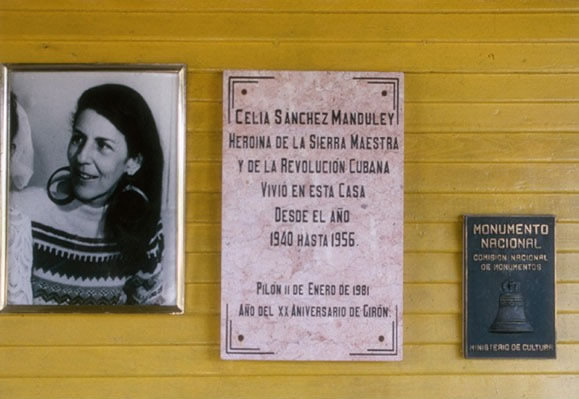 CELIA SÁNCHEZ MANDULEY
HEROINA DE LA SIERRA MAESTRA
Y DE LA REVOLUCIÓN CUBANA
VIVIÓ EN ESTA CASA
DESDE EL AÑO
1940 HASTA 1956.
PILÓN 11 DE ENERO DE 1981
AÑO DEL XX ANIVERSARIO DE GIRÓN.
MONUMENTO
NACIONAL
COMISIÓN NACIONAL
DE MONUMENTOS
MINISTERIO DE CULTURA